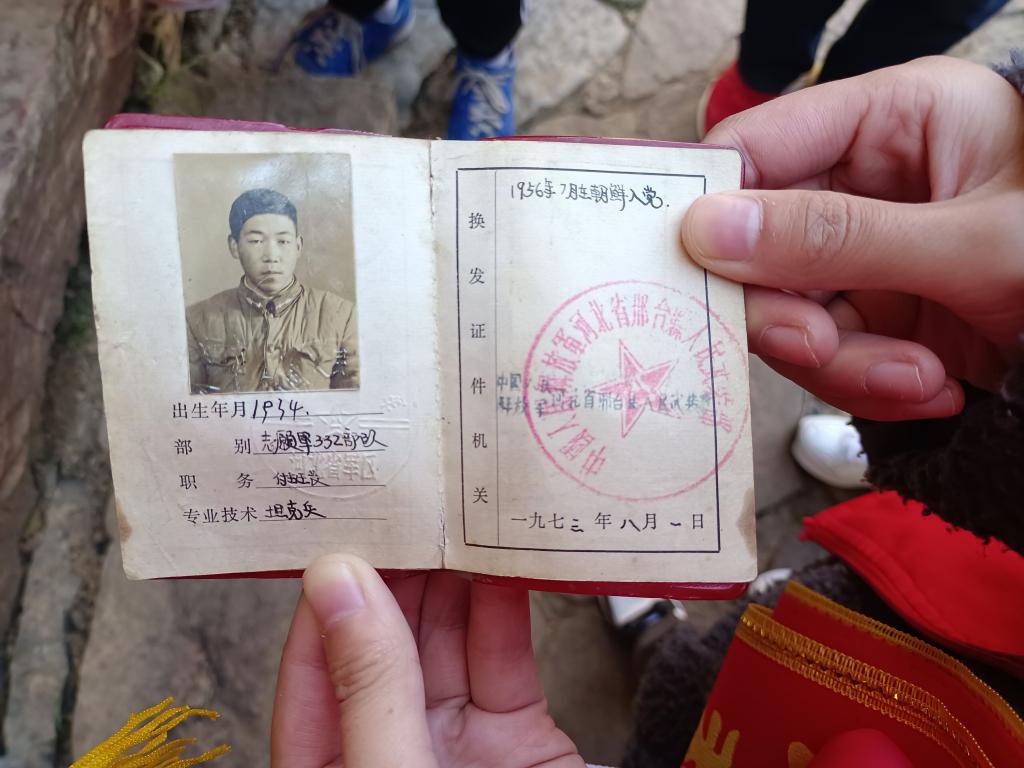 出生年月1934.
部别 志愿军332部队
职务 付班长
专业技术 坦克兵
1956年7月在朝鲜入党.
换发证件机关
中国人民解放军河北省邢台县人民武装部
中国人民
解放军河北省邢台县人民武装部
一九七三年八月一日
河北省军区